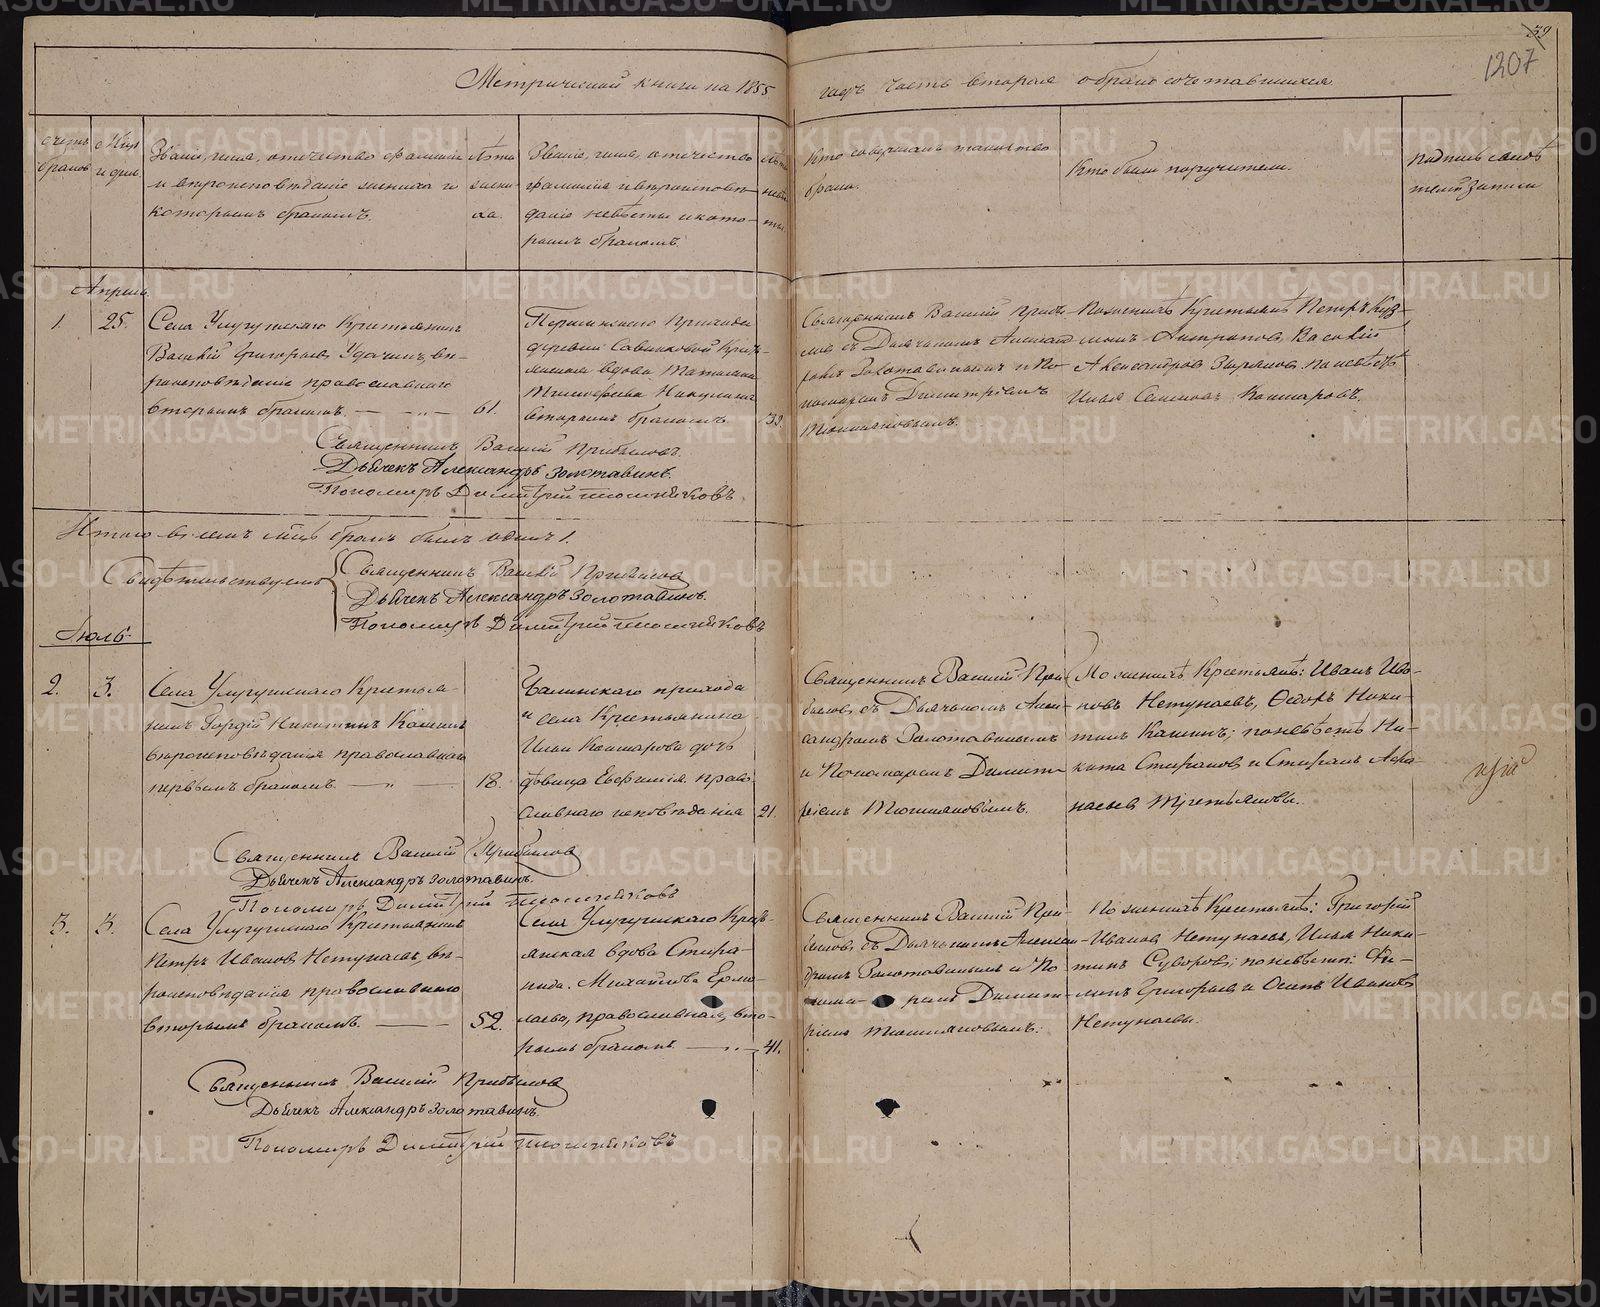 39
1207
Метрической книги на 1855 годъ часть вторая о бракосочетавшихся
счетъ браковъ
Мѣсяцъ и день
Званіе, имя, отечество, фамилія
и вѣроисповѣданіе жениха и
которымъ бракомъ.
Лѣта
жени-
ха.
Званіе, имя, отечество
фамилія и вѣроисповѣ-
даніе невѣсты и кото-
рымъ бракомъ.
Лѣта
невѣс-
ты.
Кто совершалъ таинство
брака.
Кто были поручители.
Подпись свидѣ-
телей записи
Апрель
1. 25.
Села Уируушскаго Крестьянинъ
Василій Григорьевъ Удачинъ, вѣ-
роисповѣданія православнаго
вторымъ бракомъ. 61.
Приходa
деревни Савинковой Крест-
янская вдова Татьяна
Тимофеева Никулина
вторымъ бракомъ. 39.
Священникъ Василій Прибы-
ловъ съ Дьячкомъ Александ-
ромъ Золотавинымъ и По-
номаремъ Димитріемъ
Тюшняковымъ.
По женихѣ Крестьянѣ Петръ Куз-
минъ Антропов, Василій
Александровъ Зыряновъ. По невѣстѣ
Илья Семеновъ Кошкаровъ.
Священникъ Василій Прибыловъ.
Дьячекъ Александръ Золотавинъ.
Пономарь Димитрій Тюшняковъ
Итого въ семъ мѣсяцѣ бракъ былъ одинъ 1.
Свидѣтельствуемъ
Священникъ Василій Прибыловъ
Дьячекъ Александръ Золотавинъ.
Пономарь Димитрій Тюшняковъ
Июль
2. 3.
Села Крестья-
нинъ Гордѣй Никитинъ Кашинъ
вѣроисповѣданія православнаго
первымъ бракомъ. 18.
прихода
и села Крестьянина
Ильи Кошкарова дочь
дѣвица Евфимія право-
славнаго исповѣданія 21.
Священникъ Василій При-
быловъ съ Дьячкомъ Алек-
сандромъ Золотавинымъ
и Пономаремъ Димит-
ріемъ Тюшняковымъ.
По женихѣ Крестьянѣ: Иванъ Ива-
новъ Нетунаевъ, Ѳедоръ Ники-
тинъ Кашинъ; по невѣстѣ Ни-
кита Стефановъ и Стефанъ Афа-
насьевъ Третьяковы.
Священникъ Василій Прибыловъ
Дьячекъ Александръ Золотавинъ.
Пономарь Димитрій Тюшняковъ
3. 3.
Села Крестьянинъ
Петръ Ивановъ Нетунаевъ, вѣ-
роисповѣданія православнаго
вторымъ бракомъ. 52.
Села Крест-
янская вдова Степа-
нида Михайлова Ермо-
лаева, православная, вто-
рымъ бракомъ 41.
Священникъ Василій При-
быловъ съ Дьячкомъ Алексан-
дромъ Золотавинымъ и По-
нома- ремъ Димит-
ріемъ Тюшняковымъ:
По женихѣ Крестьянѣ: Григорій
Ивановъ Нетунаевъ, Илья Ники-
тинъ Суворовъ; по невѣстѣ: Фи-
липъ Григорьевъ и Осипъ Ивановъ
Нетунаевы.
Священникъ Василій Прибыловъ
Дьячекъ Александръ Золотавинъ.
Пономарь Димитрій Тюшняковъ
METRIKI.GASO-URAL.RU